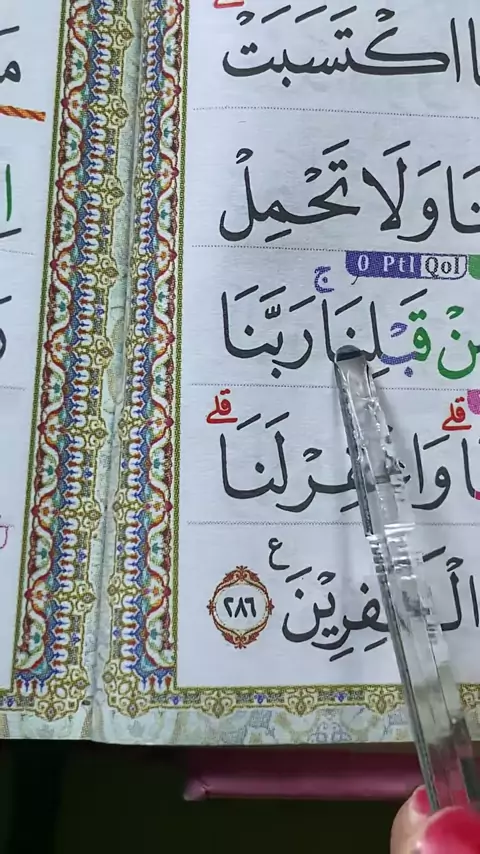 اكْتَسَبَتْ
نَا وَلَا تَحْمِلْ
O Ptl Qol
قَبْلِنَا ۚ رَبَّنَا
قلے قلے
وَاغْفِرْ لَنَا
ع
الْكٰفِرِيْنَ ٢٨٦